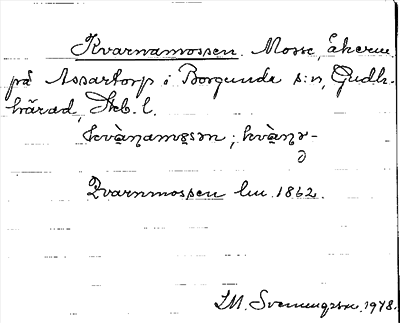 Kvarnamossen. Mosse, åkerm.
på Assartorp i Borgunda s:n, Gudh.
härad, Skb. l.
kvà̀ṇamọsən; kvà̀ṇə-
Qvarnmossen lm. 1862.
I.M. Svennungsson. 1978.